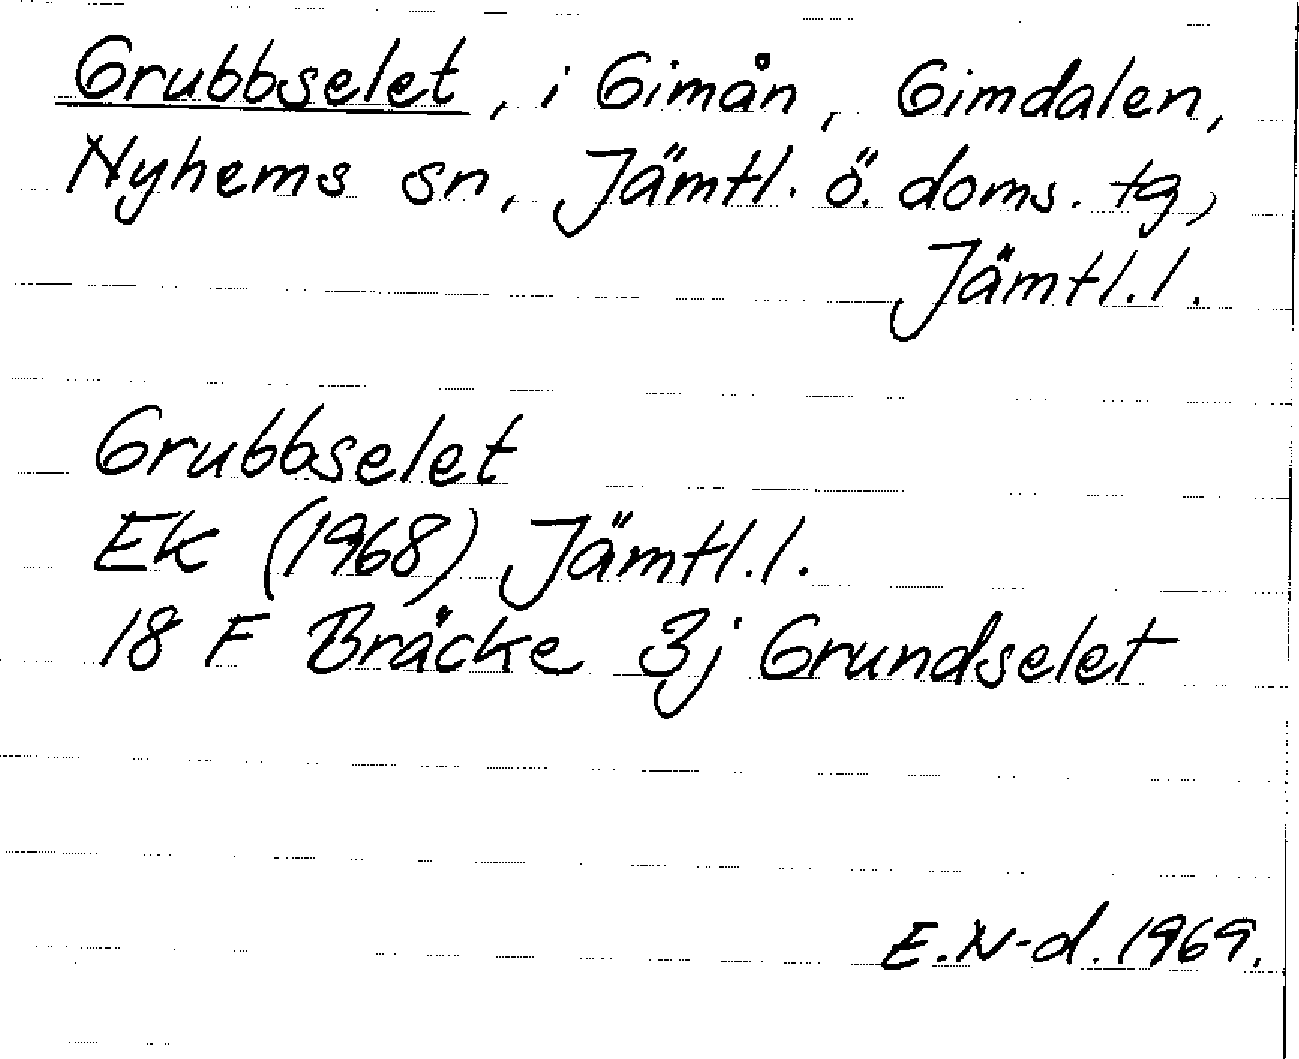 Grubbselet, i Gimån, Gimdalen,
Nyhems sn, Jämtl. ö. doms. tg,
Jämtl. l.
Grubbselet
Ek (1968) Jämtl. l.
18 F Bräcke 3j Grundselet
E. N-d. 1969.